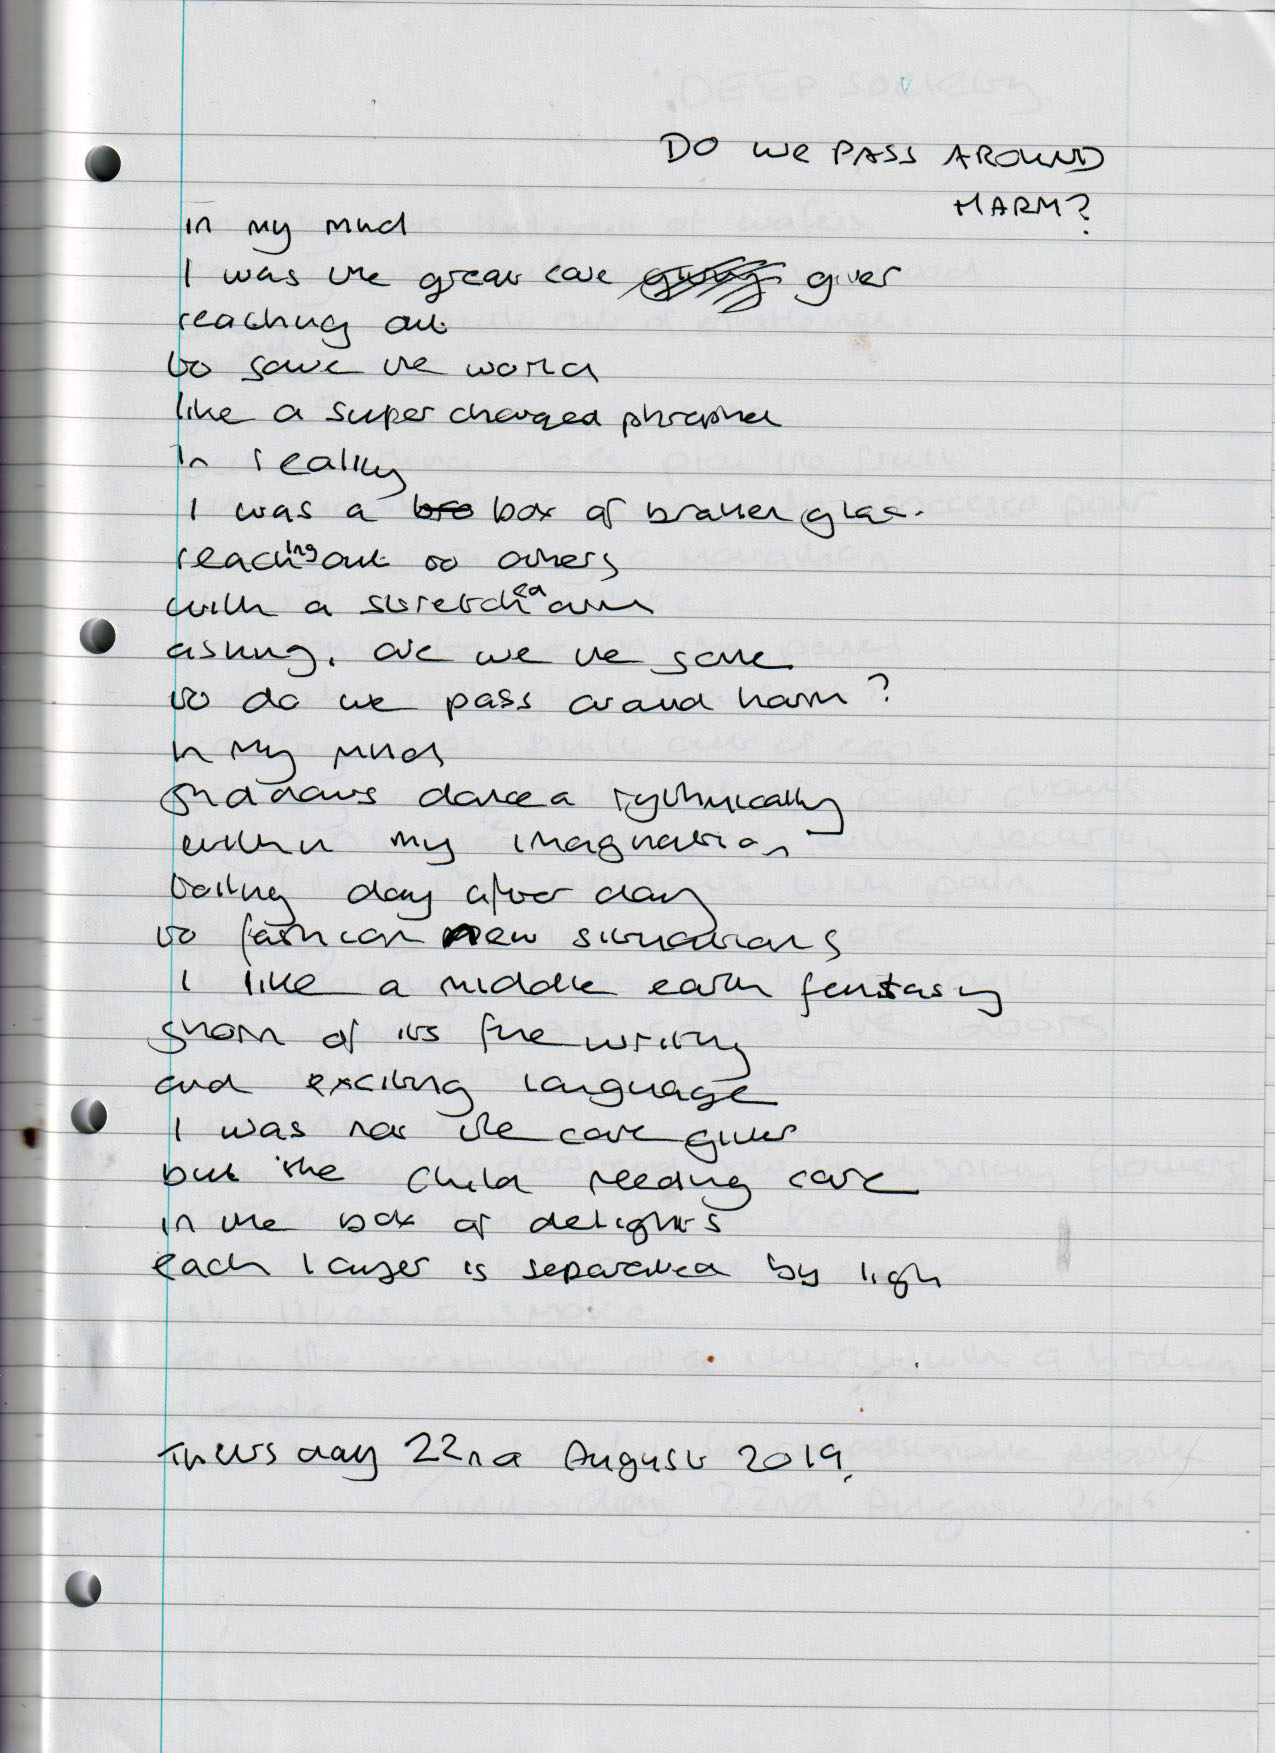 DO WE PASS AROUND
HARM?
in my mind
I was the great care giver
reaching out
to save the world
like a super charged
in reality
I was a box of broken glass.
reaching out to others
with a stretched arm
asking, are we the same
to do we pass around harm?
in my mind
shadows danced rythmically
within my imagination
toiling day after day
to fashion new situations
I like a middle earth fantasy
shorn of its fine writing
and exciting language
I was not the care giver
but the child needing care
in the box of delights
each layer is separated by ligh
Thursday 22nd August 2019.